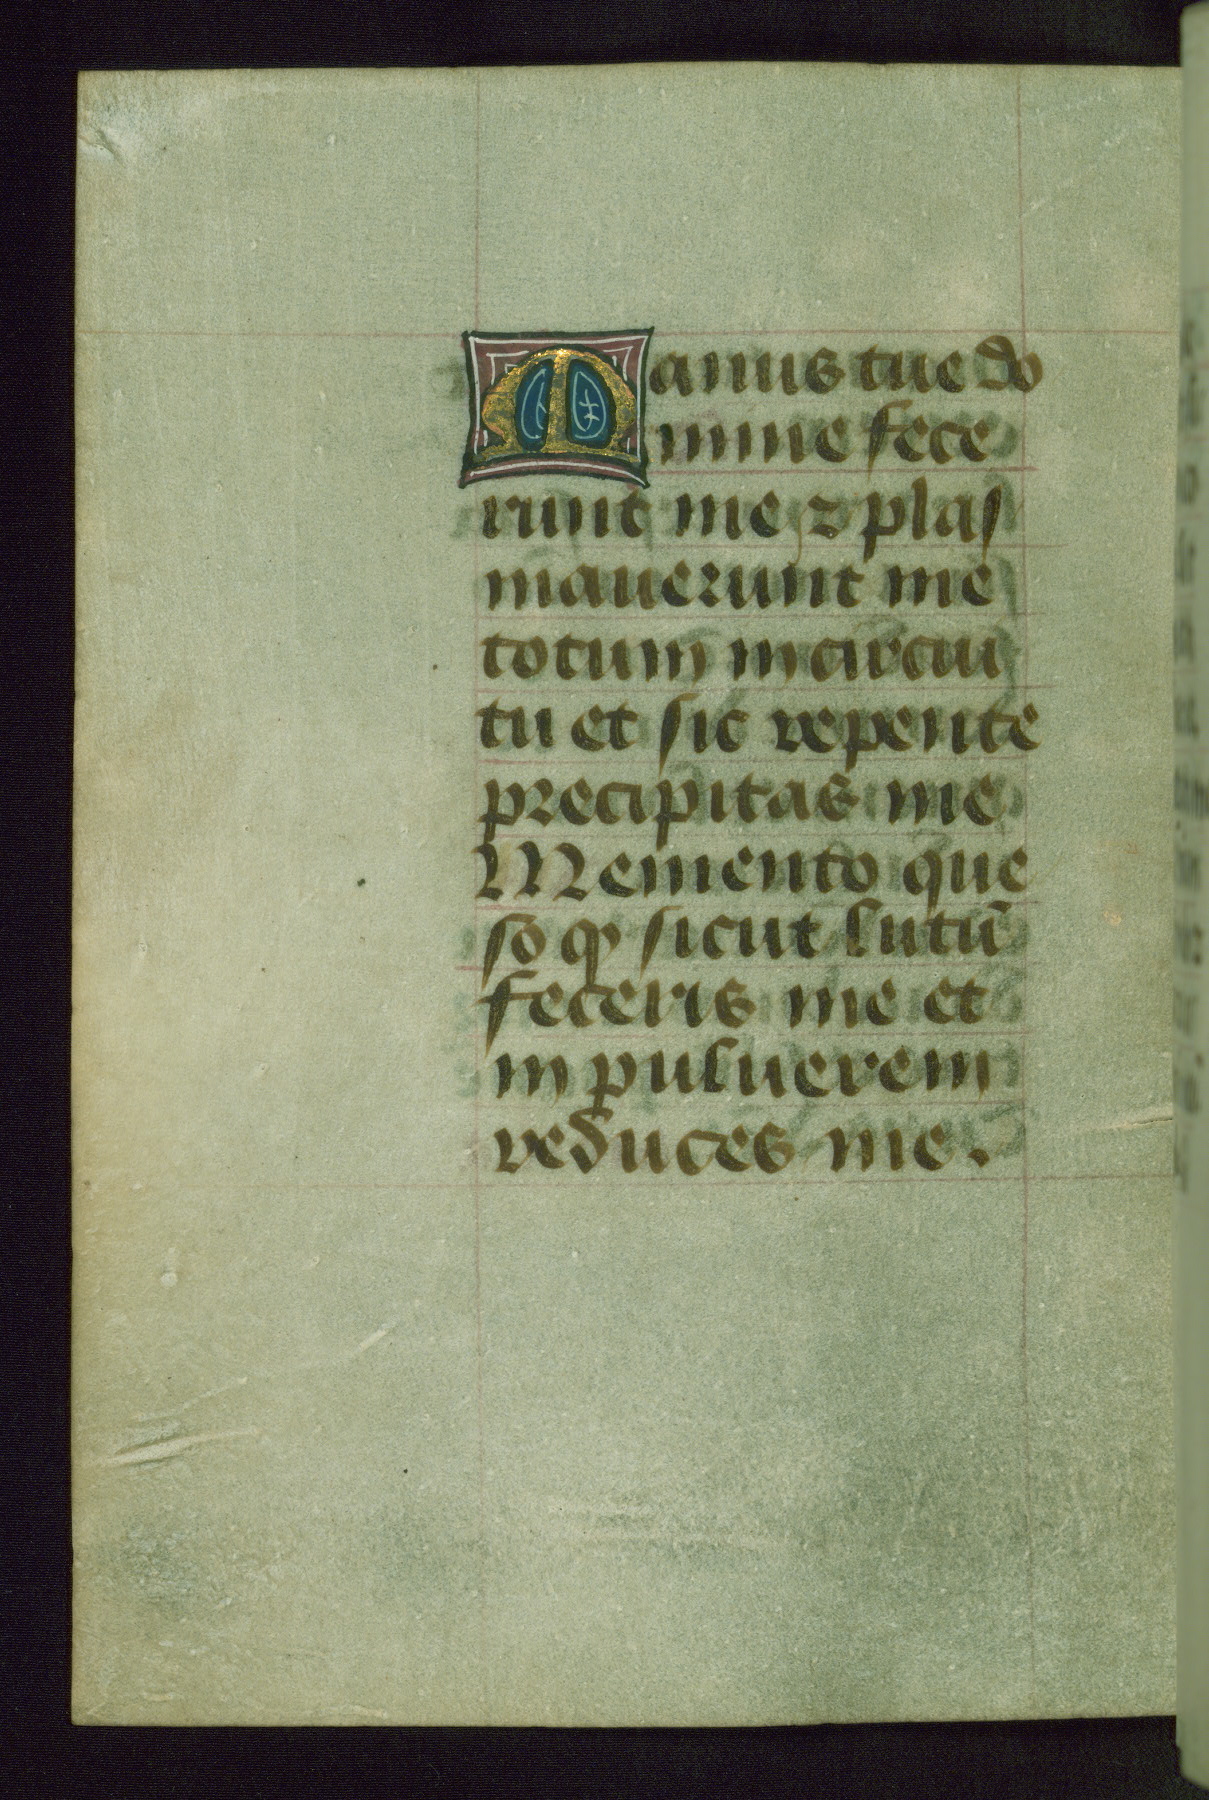 Manus tue do
mine fece
runt me ⁊ plas
mauerunt me
totum in circui
tu et sic repente
precipitas me
Memento que
so ꝙ sicut lutū
feceris me et
in puluerem
reduces me.